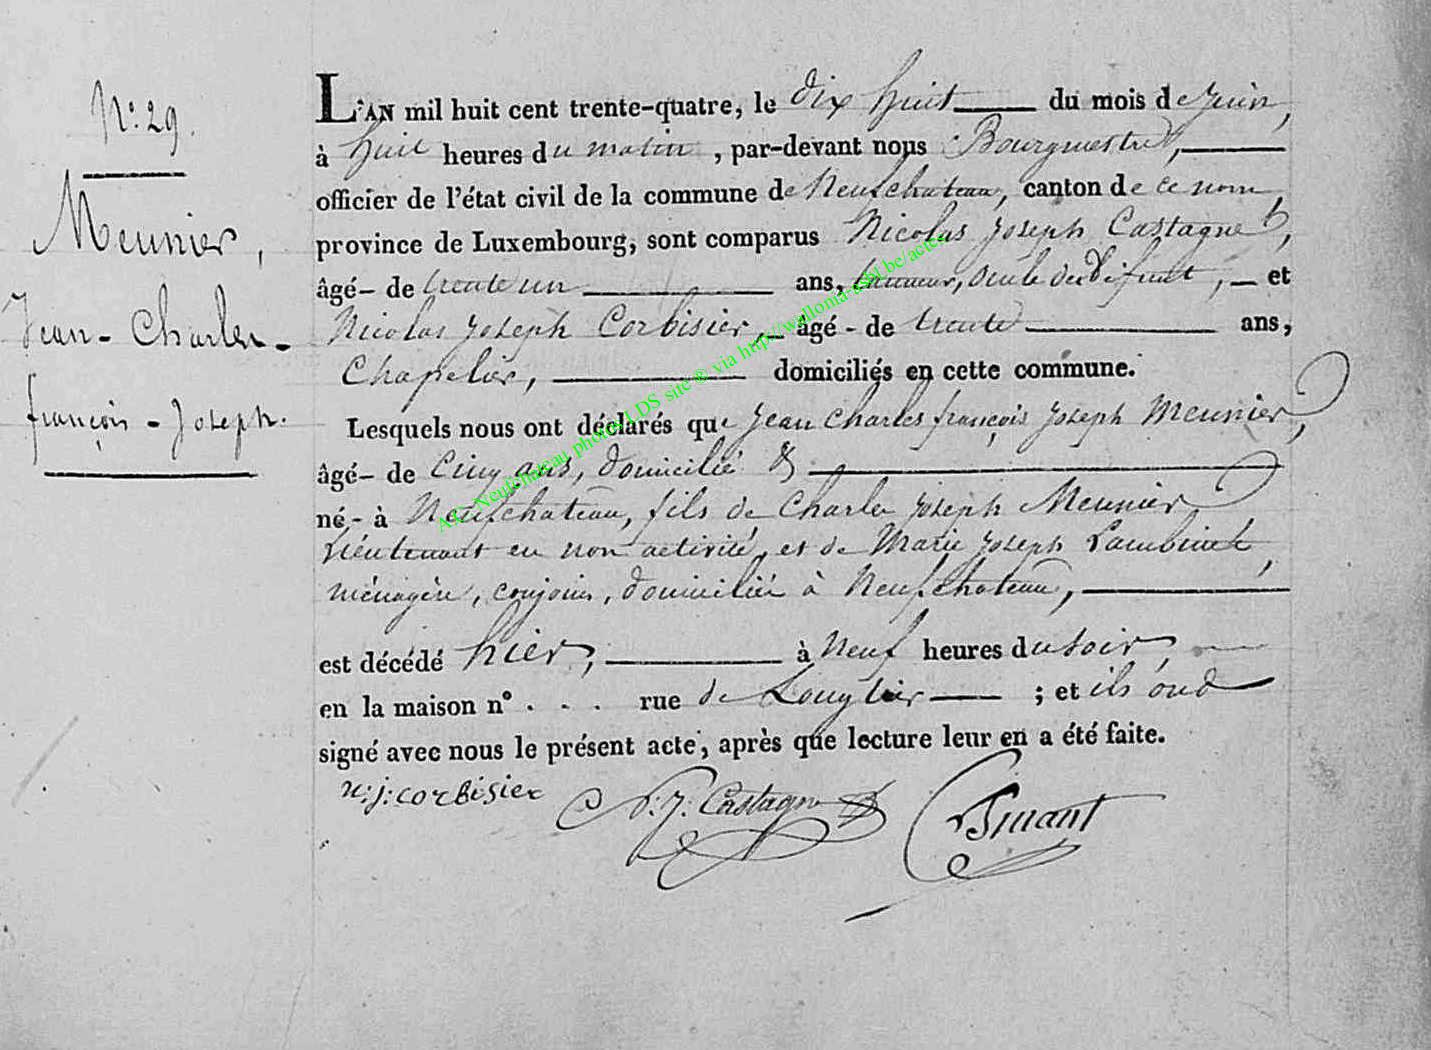 N.° 29.
Meunier,
Jean-Charles-
françois-Joseph.
L'AN mil huit cent trente-quatre, le dix huit du mois de juin,
à huit heures du matin, par-devant nous Bourgmestre,
officier de l'état civil de la commune de Neufchateau, canton de ce nom
province de Luxembourg, sont comparus Nicolas Joseph Castagne,
âgé- de trente un ans, tanneur, oncle du défunt, et
Nicolas Joseph Corbisier, âgé - de trente ans,
Chapelier, domiciliés en cette commune.
Lesquels nous ont déclarés que Jean Charles françois Joseph Meunier,
âgé- de Cinq ans, domicilié &
né - à Neufchateau, fils de Charles Joseph Meunier
Lieutenant en non activité, et de Marie Joseph Lambinet,
ménagère, conjoins, domiciliés à Neufchateau,
est décédé hier, à Neuf heures du soir,
en la maison n° . . . rue de Longlier ; et ils ont
signé avec nous le présent acte, après que lecture leur en a été faite.
n: j: corbisier N: J: Castagne
AE - Neufchâteau photos LDS site @ via http://walloma-asbl.be/actes